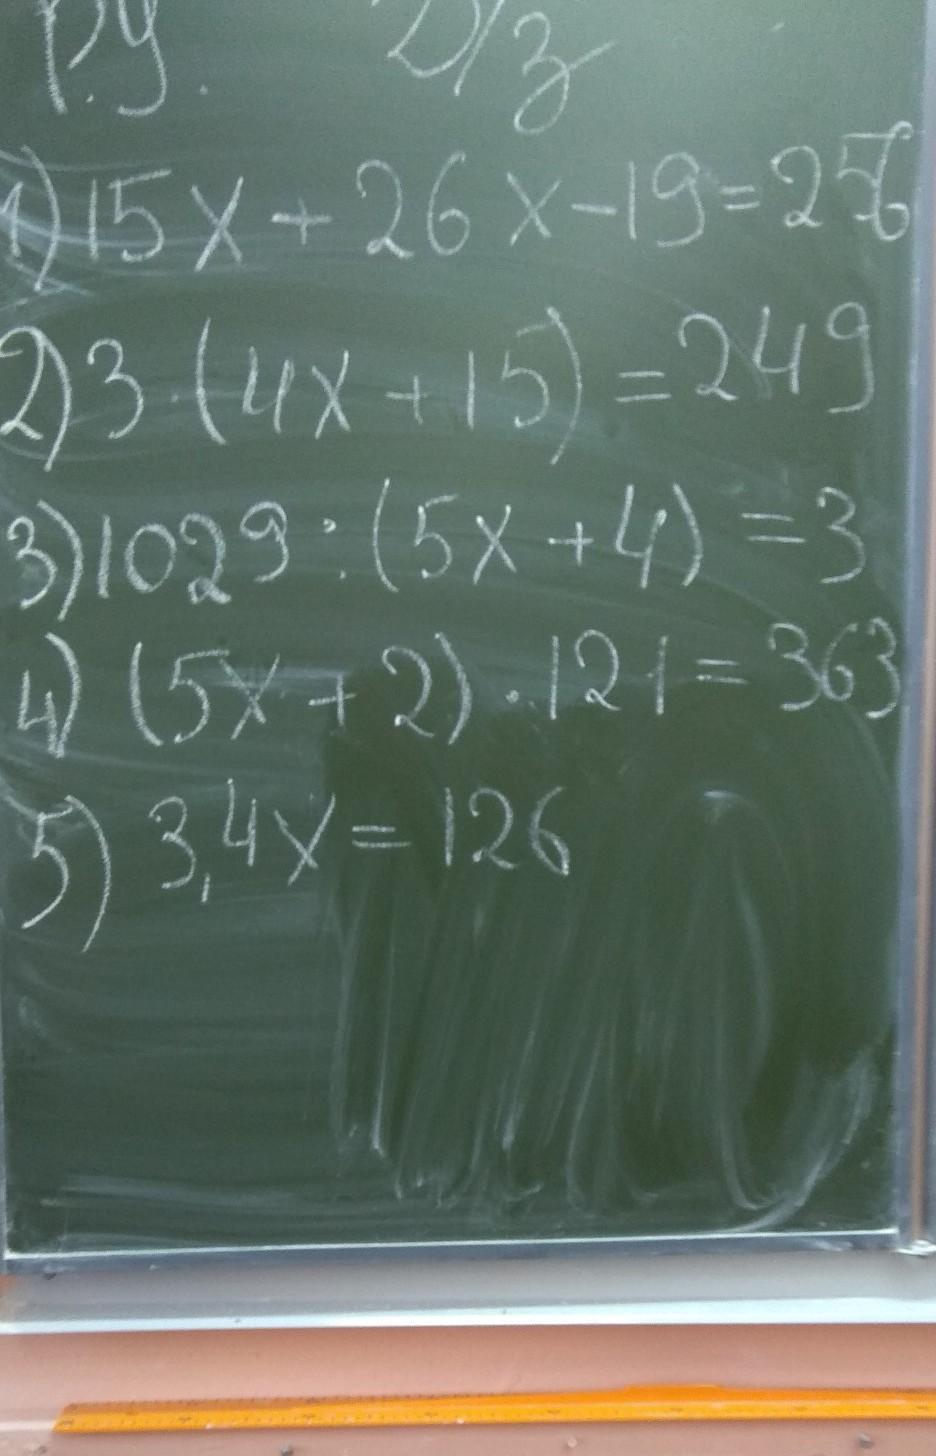 р.у. D/з
1) 15x + 26x - 19 = 256
2) 3 · (4x + 15) = 249
3) 1029 : (5x + 4) = 3
4) (5x + 2) · 121 = 363
5) 3,4x = 126